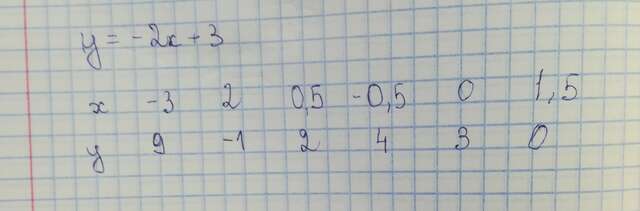 y = -2x + 3
x -3 2 0,5 -0,5 0 1,5
y 9 -1 2 4 3 0